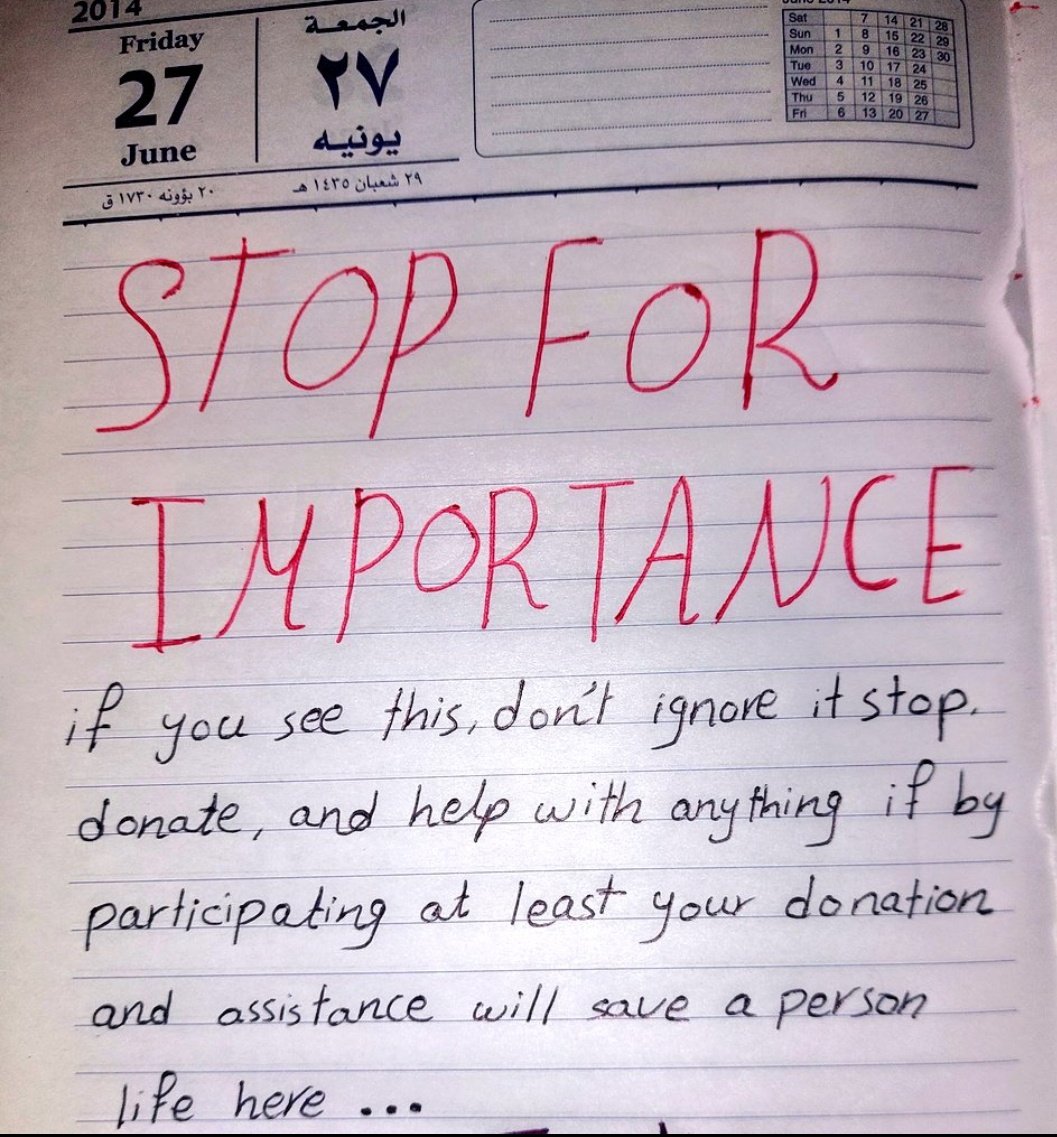 2014
Friday
27
June
الجمعة
٢٧
يونيه
٢٠ بؤونه ١٧٣٠ ق
٢٩ شعبان ١٤٣٥ هـ
June 2014
Sat 7 14 21 28
Sun 1 8 15 22 29
Mon 2 9 16 23 30
Tue 3 10 17 24
Wed 4 11 18 25
Thu 5 12 19 26
Fri 6 13 20 27
STOP FOR
IMPORTANCE
if you see this, don't ignore it stop.
donate, and help with anything if by
participating at least your donation
and assistance will save a person
life here ...